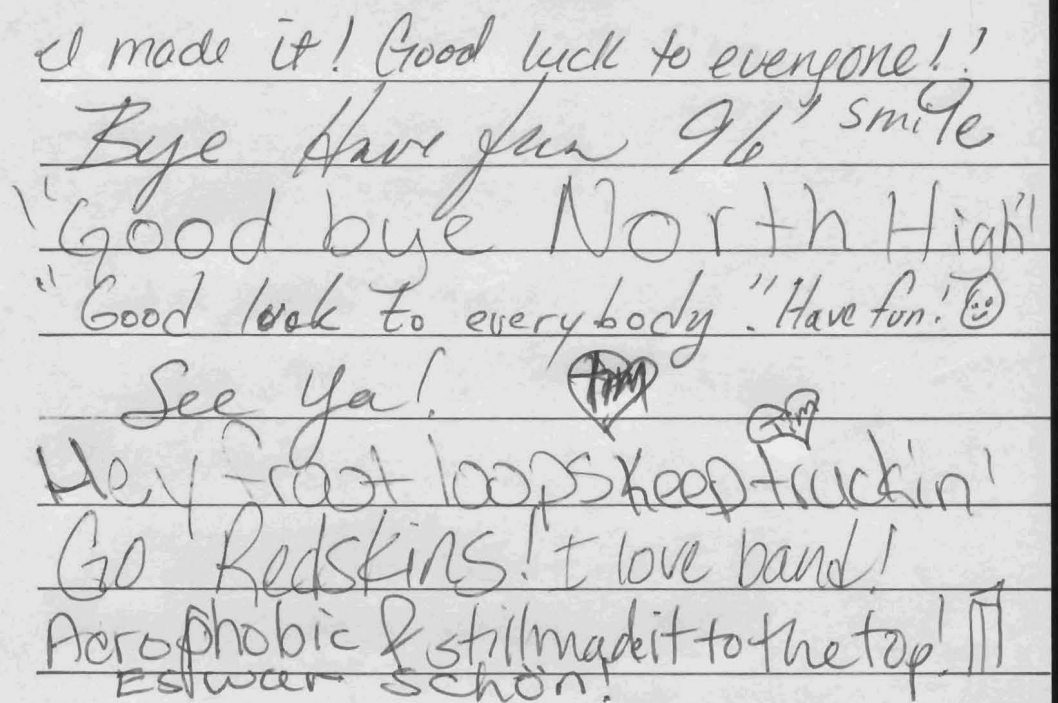 I made it! Good luck to everyone!!
Bye Have fun 96' smile
"Good bye North High"
"Good look to everybody." Have fun!
See Ya!
Hey froot loops Keep truckin'
Go Redskins! I love band!
Acrophobic & still made it to the top!
Es war schön!